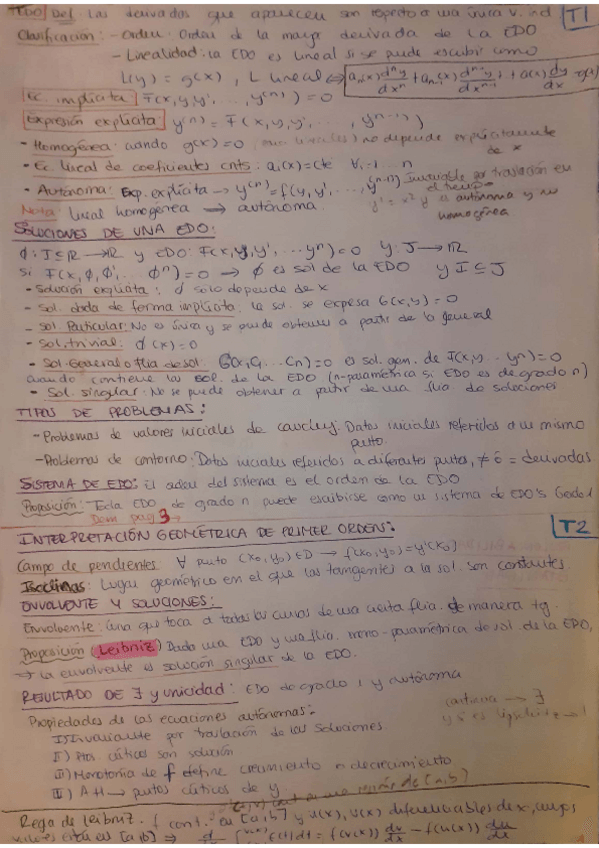 EDO Def: Las derivadas que aparecen son respecto a una única v. ind T1
Clasificación: - Orden: Orden de la mayor derivada de la EDO
- Linealidad: la EDO es lineal si se puede escribir como
L(y) = g(x), L lineal ⇔ aₙ(x) dⁿy/dxⁿ + aₙ₋₁(x) dⁿ⁻¹y/dxⁿ⁻¹ + ... + a₁(x) dy/dx
Ec. implícita F(x,y,y',...,y⁽ⁿ⁾) = 0
Expresión explícita: y⁽ⁿ⁾ = F(x,y,y',...,yⁿ⁻¹)
- Homogénea: cuando g(x)=0 no depende explícitamente de x
- Ec. lineal de coeficientes cnts: aᵢ(x)=cte ∀i=1...n
- Autónoma: Exp. explícita → y⁽ⁿ⁾ = f(y,y',...,y⁽ⁿ⁻¹⁾) Invariable por traslación en el tiempo
Nota: lineal homogénea → autónoma. y' = x² y a autónoma y no homogénea
SOLUCIONES DE UNA EDO:
ϕ: I⊆R → R y EDO: F(x,y,y',...yⁿ)=0 y: J → R
si F(x,ϕ,ϕ',...ϕⁿ)=0 → ϕ es sol de la EDO y I⊆J
- Solución explícita: ϕ solo depende de x
- Sol. dada de forma implícita: la sol. se expresa G(x,y)=0
- Sol. Particular: No es única y se puede obtener a partir de la general
- Sol. trivial: ϕ(x)=0
- Sol. General o flia de sol: G(x,C₁...Cn)=0 es sol. gen. de F(x,y...yⁿ)=0
cuando contiene las sol. de la EDO (n-paramétrica si EDO es de grado n)
- Sol. singular: No se puede obtener a partir de una flia. de soluciones
TIPOS DE PROBLEMAS:
- Problemas de valores iniciales de cauchy: Datos iniciales referidos a un mismo
punto.
- Problemas de contorno: Datos iniciales referidos a diferentes puntos, ≠ ó = derivadas
SISTEMA DE EDO: El orden del sistema es el orden de la EDO
Proposición: Toda EDO de grado n puede escribirse como un sistema de EDO's Grado 1
Dem pag 3
INTERPRETACIÓN GEOMÉTRICA DE PRIMER ORDEN: T2
Campo de pendientes: ∀ punto (x₀,y₀)∈D → f(x₀,y₀)=y'(x₀)
Isoclinas: Lugar geométrico en el que las tangentes a la sol. son constantes.
ENVOLVENTE Y SOLUCIONES:
Envolvente: Curva que toca a todas las curvas de una cierta flia. de manera tg.
Proposición (Leibniz) Dada una EDO y una flia. mono-paramétrica de sol. de la EDO,
→ la envolvente es solución singular de la EDO.
RESULTADO DE ∃ y unicidad: EDO de grado 1 y autónoma
Propiedades de las ecuaciones autónomas: continua → ∃
I) Invariante por traslación de las soluciones y si es lipschitz → !
II) Ptos críticos son solución
III) Monotonía de f define crecimiento o decrecimiento
A.H → puntos críticos de y
Regla de Leibniz. f cont. en [a,b] y u(x), v(x) diferenciables de x, cuyos
valores están en [a,b] ⇒ d/dx ∫ f(t)dt = f(v(x)) dv/dx − f(u(x)) du/dx